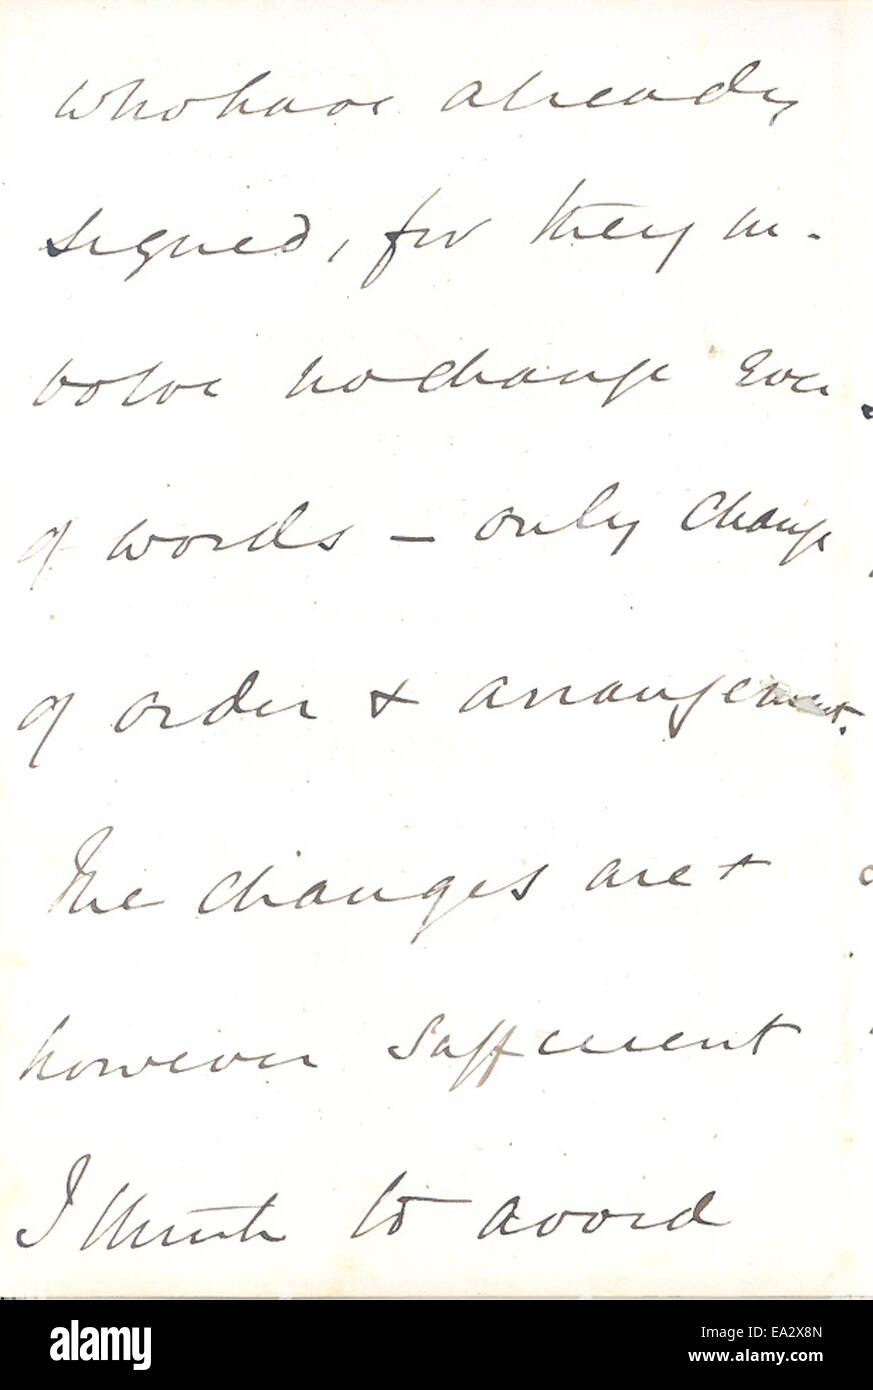 who have already
signed, for they in-
volve no change even
of words – only change
of order & arrangement.
The changes are
however sufficient
I think to avoid
alamy
Image ID: EA2X8N
www.alamy.com